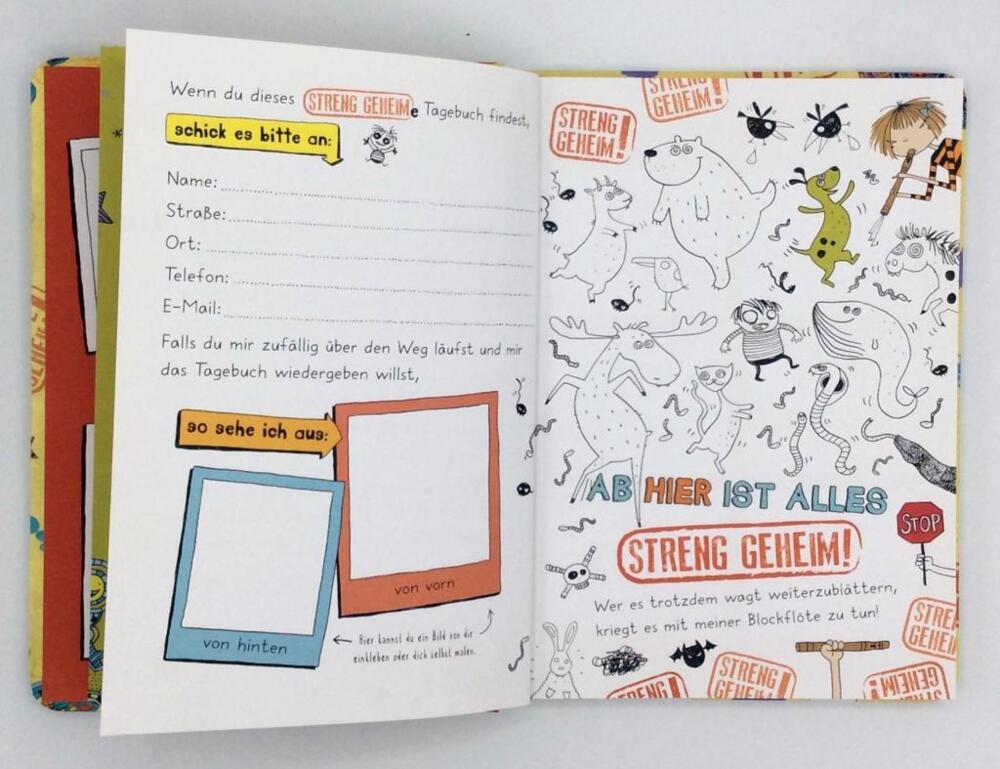 Wenn du dieses STRENG GEHEIMe Tagebuch findest,
schick es bitte an:
Name:
Straße:
Ort:
Telefon:
E-Mail:
Falls du mir zufällig über den Weg läufst und mir
das Tagebuch wiedergeben willst,
so sehe ich aus:
von vorn
von hinten
Hier kannst du ein Bild von dir
einkleben oder dich selbst malen.
STRENG
GEHEIM!
STRENG
GEHEIM!
AB HIER IST ALLES
STOP
STRENG GEHEIM!
Wer es trotzdem wagt weiterzublättern,
kriegt es mit meiner Blockflöte zu tun!
STRENG
GEHEIM!